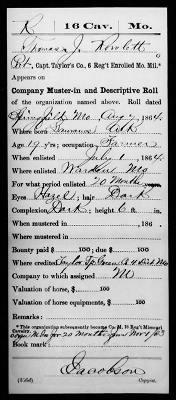 R 16 Cav. Mo.
Thomas J. Rowlett
Pvt., Capt. Taylor's Co., 6 Reg't Enrolled Mo. Mil.*
Appears on
Company Muster-in and Descriptive Roll
of the organization named above. Roll dated
Springfield Mo Aug , 1864.
Where born Ark
Age 19 y'rs; occupation Farmer
When enlisted July 1, 1864.
Where enlisted Mo
For what period enlisted 20 Months
Eyes Hazel; hair Dark
Complexion Dark; height 6 ft. in.
When mustered in , 186 .
Where mustered in
Bounty paid $ 100; due $ 100
Where credited
Company to which assigned M
Valuation of horse, $ 100
Valuation of horse equipments, $ 100
Remarks:
*This organization subsequently became Co. M, 16 Reg't Missouri Cavalry.
Book mark:
Jacobson
(356d) Copyist.